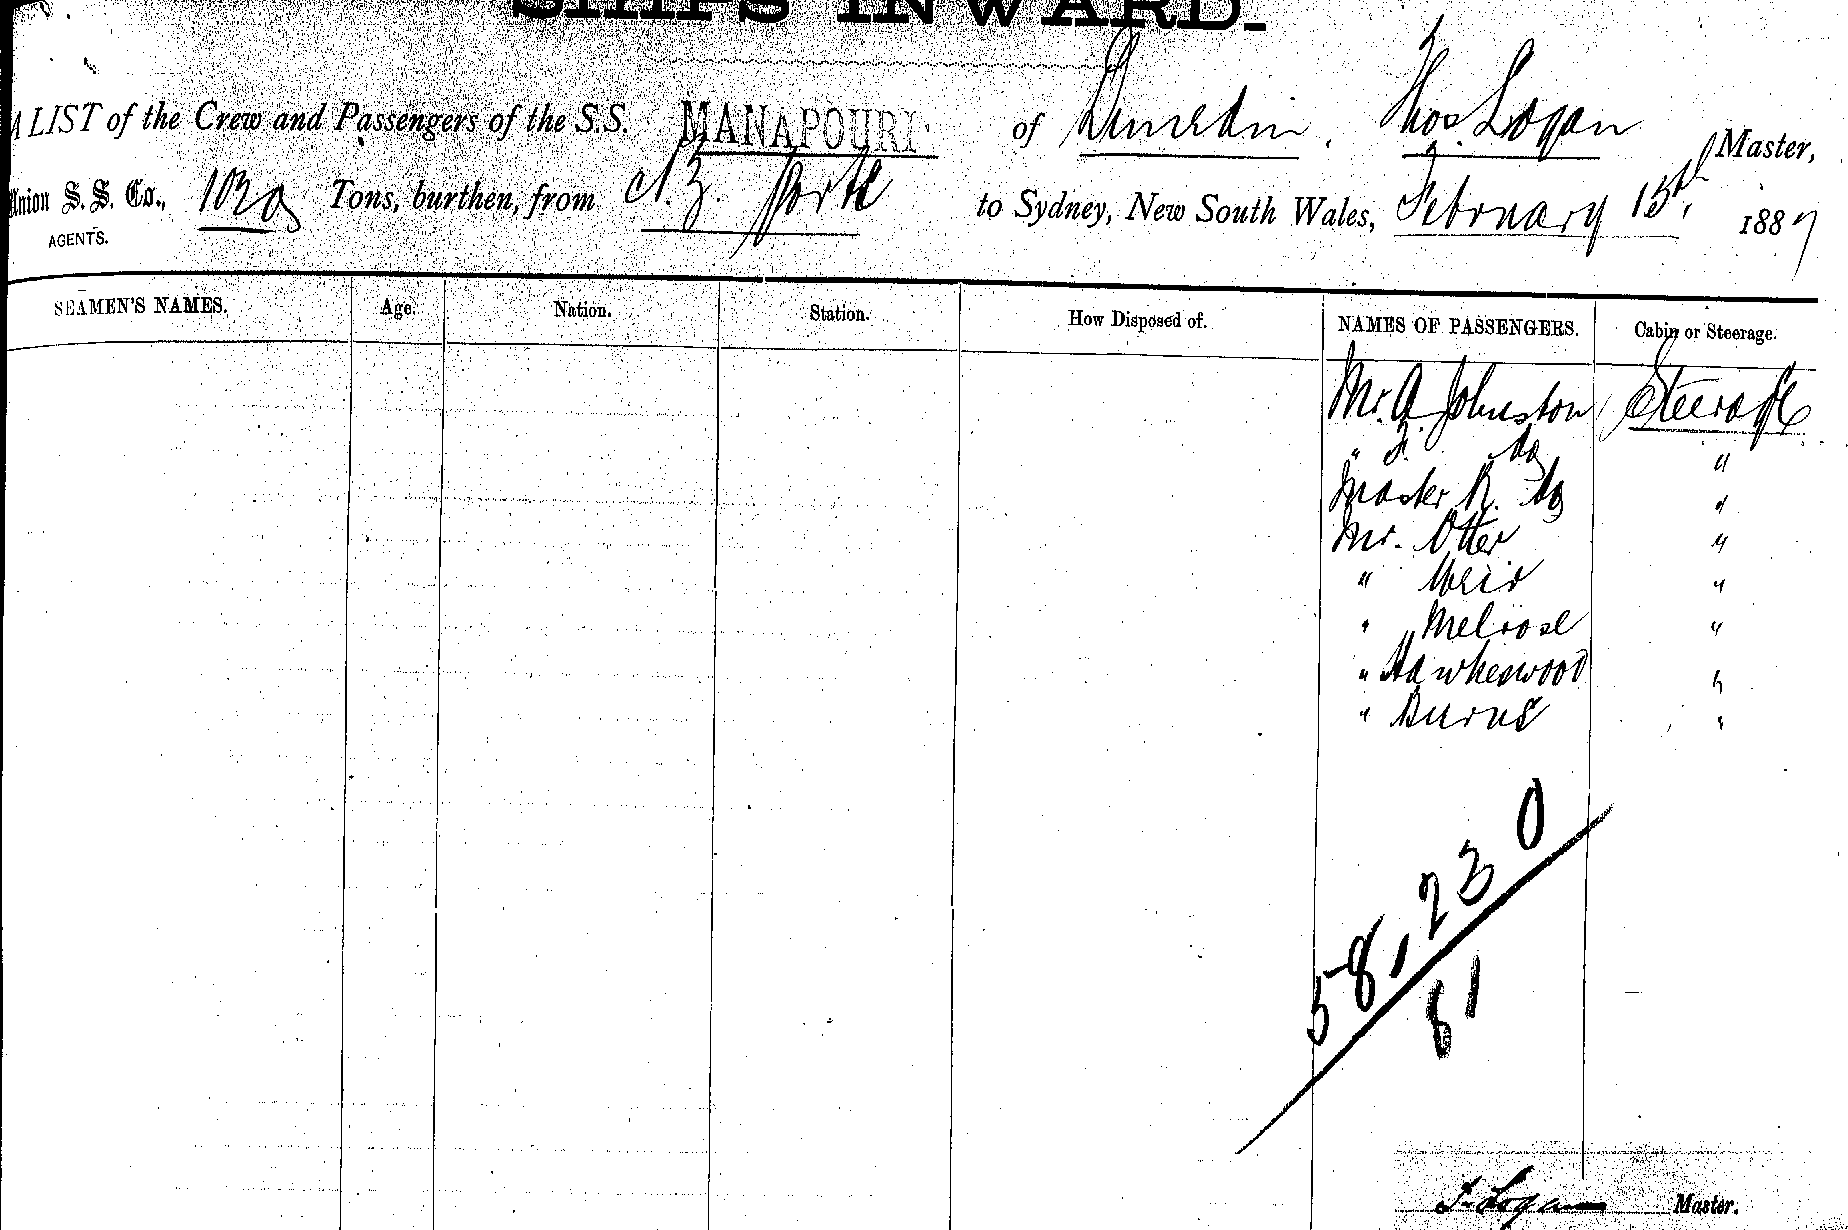 SHIPS INWARD.
A LIST of the Crew and Passengers of the S.S. MANAPOURI of Dunedin, Thos. Logan Master,
Union S. S. Co., 1020 Tons, burthen, from N.Z. Ports to Sydney, New South Wales, February 15th, 1887
AGENTS.
SEAMEN'S NAMES. Age. Nation. Station. How Disposed of. NAMES OF PASSENGERS. Cabin or Steerage.
Mr. A. Johnston Steerage
" F. do "
Master R. do "
Mr. Otter "
" Weir "
" Melrose "
" Hawkeswood "
" Burns "
58, 23 0
81
T. Logan Master.